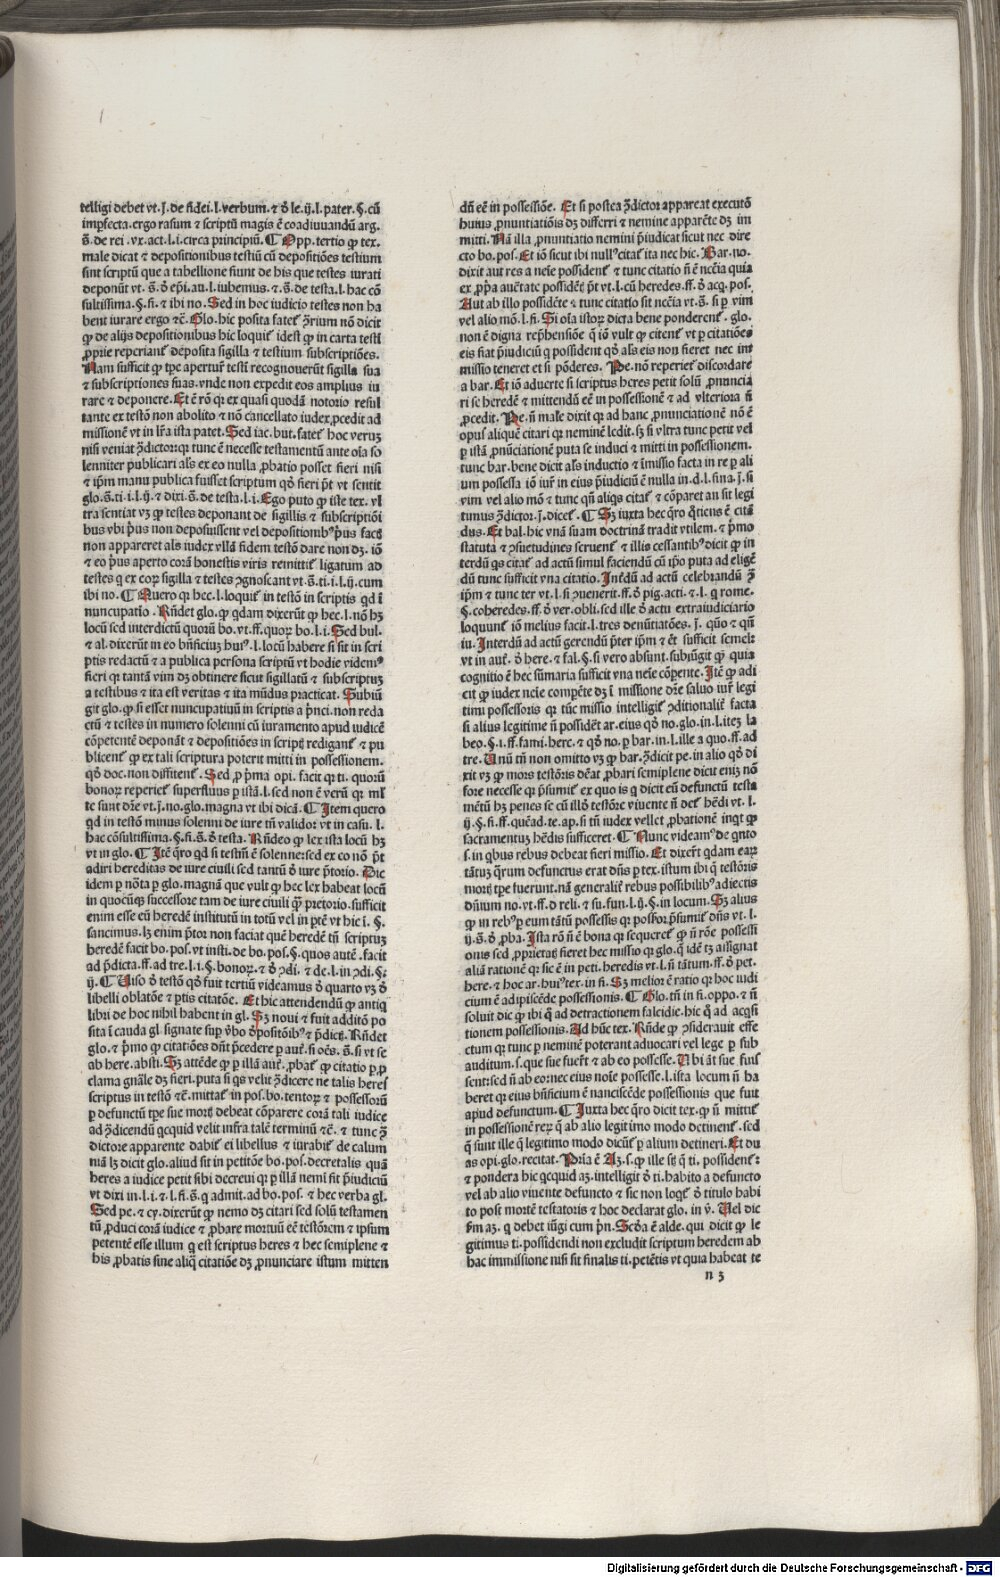 telligi debet vt.j.de fidei.l.verbum.⁊ ꝺ̄ le.ij.l.pater.§.cū
impfecta.ergo rasum ⁊ scriptū magis ē coadiuuandū arg.
s̄.de rei.vx.act.l.i.circa principiū. ¶ Opp.tertio ꝙ tex.
male dicat ⁊ depositionibus testiū cū depositiōes testium
sint scriptū que a tabellione fiunt de his que testes iurati
deponūt vt.s̄.ꝺ̄ ep̄i.au.l.iubemus.⁊.s̄.de testa.l.hac cō
sultissima.§.fi.⁊ ibi no. Sed in hoc iudicio testes non ha
bent iurare ergo ⁊c̄. Glo.hic posita fatet᷑ ꝯ̄rium nō dicit
ꝙ de alijs depositionibus hic loquit᷑ idest ꝙ in carta testi
ꝓprie reperiant᷑ deposita sigilla ⁊ testium subscriptiōes.
Nam sufficit ꝙ tp̄e apertur̄ testi recognouerūt sigilla sua
⁊ subscriptiones suas.vnde non expedit eos amplius iu
rare ⁊ deponere. Et ē rō qr ex quasi quodā notorio resul
tante ex testō non abolito ⁊ nō cancellato iudex ꝓcedit ad
missionē vt in lr̄a ista patet. Sed iac.but.fatet᷑ hoc verū
nisi veniat ꝯ̄dictor:qr tunc ē necesse testamentū ante oīa so
lenniter publicari als ex eo nulla ꝓbatio posset fieri nisi
⁊ ip̄m manu publica fuisset scriptum qd̄ fieri p̄t vt sentit
glo.s̄.ti.i.l.ij.⁊ dixi.s̄.de testa.l.i. Ego puto ꝙ iste tex.vl
tra sentiat vꝫ ꝙ testes deponant de sigillis ⁊ subscriptiōi
bus vbi p̄us non deposuissent vel depositionibꝰ p̄us factꝭ
non appareret als iudex vllā fidem testō dare non dꝫ.iō
⁊ eo p̄us aperto corā honestis viris remittit᷑ ligatum ad
testes q ex corꝑ sigilla ⁊ testes ꝯgnoscant vt.s̄.ti.i.l.ij.cum
ibi no. ¶ Quero qr hec.l.loquit᷑ in testō in scriptis qd ī
nuncupatio. Rn̄det glo.ꝙ qdam dixerūt ꝙ hec.l.nō hꝫ
locū sed interdictū quorū bo.vt.ff.quoꝝ bo.l.i. Sed bul.
⁊ al.dixerūt in eo bn̄ficium huiꝰ.l.locū habere si sit in scri
ptis redactū ⁊ a publica persona scriptū vt hodie videmꝰ
fieri qr tantā vim dꝫ obtinere sicut sigillatū ⁊ subscriptuꝫ
a testibus ⁊ ita est veritas ⁊ ita mūdus practicat. Subiū
git glo.ꝙ si esset nuncupatiuū in scriptis a p̄nci.non reda
ctū ⁊ testes in numero solenni cū iuramento apud iudicē
cōpetentē deponāt ⁊ depositiōes in scriptꝭ redigant᷑ ⁊ pu
blicent᷑ ꝙ ex tali scriptura poterit mitti in possessionem.
qd̄ doc.non diffitent᷑. Sed ꝓ p̄ma opi.facit qr ti.quorū
bonoꝝ reperiet᷑ superfluus ꝑ istā.l.sed non ē verū qr ml
te sunt dr̄e vt.j.no.glo.magna vt ibi dicā. ¶ Item quero
qd in testō minus solenni de iure tn̄ validor vt in casu.l.
hac cōsultissima.§.fi.s̄.ꝺ̄ testa. Rn̄deo ꝙ lex ista locū hꝫ
vt in glo. ¶ Itē q̄ro qd si testm̄ ē solenne:sed ex eo nō p̄t
adiri hereditas de iure ciuili sed tantū ꝺ̄ iure p̄torio. Dic
idem ꝑ nōta ꝑ glo.magnā que vult ꝙ hec lex habeat locū
in quocūqꝫ successore tam de iure ciuili qꝫ pretorio.sufficit
enim esse eū heredē institutū in totū vel in p̄tē vt hic i.§.
sancimus.lꝫ enim p̄tor non faciat quē heredē tn̄ scriptuꝫ
heredē facit bo.pos.vt insti.de bo.pos.§.quos autē.facit
ad p̄dicta.ff.ad tre.l.i.§.bonoꝝ.⁊ ꝺ̄ ꝯdi.⁊ de.l.in ꝯdi.§.
ij. ¶ Viso ꝺ̄ testō qd̄ fuit tertiū videamus ꝺ̄ quarto vꝫ ꝺ̄
libelli oblatōe ⁊ ꝑtis citatōe. Et hic attendendū ꝙ antiq
libri de hoc nihil habent in gl. Sꝫ noui ⁊ fuit additō po
sita ī cauda gl.signate suꝑ ṽbo ꝺ̄positōibꝰ ⁊ p̄dictꝭ. Rn̄det
glo.⁊ p̄mo ꝙ citatiōes dn̄t p̄cedere ꝑ aut̄.si oēs.s̄.si vt se
ab here.absti. Sꝫ attēde ꝙ ꝑ illā aut̄.ꝓbat᷑ ꝙ citatio ꝑ ꝓ
clama gn̄ale dꝫ fieri.puta si qs velit ꝯ̄dicere ne talis heres
scriptus in testō ⁊c̄.mittat᷑ in pos.bo.tentoꝝ ⁊ possessorū
ꝑ defunctū tp̄e sue mortꝭ debeat cōparere corā tali iudice
ad ꝯ̄dicendū qcquid velit infra talē terminū ⁊c̄.⁊ tunc ꝯ̄
dictore apparente dabit᷑ ei libellus ⁊ iurabit᷑ de calum
niā lꝫ dicit glo.aliud sit in petitōe bo.pos.decretalis quā
heres a iudice petit sibi decreui qr ꝑ illā nemi fit p̄iudiciū
vt dixi in.l.i.⁊.l.fi.s̄.q admit.ad bo.pos.⁊ hec verba gl.
Sed pe.⁊ cy.dixerūt ꝙ nemo dꝫ citari sed solū testamen
tū ꝓduci corā iudice ⁊ ꝓbare mortuū eē testōrem ⁊ ipsum
petentē esse illum q est scriptus heres ⁊ hec semiplene ⁊
his ꝓbatis sine aliq̄ citatiōe dꝫ ꝓnunciare istum mitten
dū eē in possessiōe. Et si postea ꝯ̄dictor appareat executō
huius ꝓnuntiatiōis dꝫ differri ⁊ nemine apparēte dꝫ im
mitti. Nā illa ꝓnuntiatio nemini p̄iudicat sicut nec dire
cto bo.pos. Et iō sicut ibi nullꝰ citat᷑ ita nec hic. Bar.no.
dixit aut res a neīe possident᷑ ⁊ tunc citatio n̄ ē nc̄cīa quia
ex ꝓpͥa auc̄tate possidēt p̄t vt.l.cū heredes.ff.ꝺ̄ acq.pos.
Aut ab illo possidēte ⁊ tunc citatio sit nc̄cīa vt.s̄.si ꝑ vim
vel alio mō.l.fi. Si oīa istoꝝ dicta bene ponderent᷑.glo.
non ē digna rep̄hensiōe q̄ iō vult ꝙ citent᷑ vt ꝑ citatiōes
eis fiat p̄iudiciū q possident qd̄ als eis non fieret nec im
missio teneret et si pōderes. Pe.nō reperiet᷑ discordare
a bar. Et iō aduerte si scriptus heres petit solū ꝓnuncia
ri se heredē ⁊ mittendū eē in possessionē ⁊ ad vlteriora n̄
ꝓcedit. Pe.n̄ male dixit qr ad hanc ꝓnunciationē nō ē
opus aliquē citari qr neminē ledit.sꝫ si vltra tunc petit vel
ꝑ istā ꝓnūciationē puta se induci ⁊ mitti in possessionem.
tunc bar.bene dicit als inductio ⁊ īmissio facta in re ꝑ ali
um possessa iō iur̄ in eius p̄iudiciū ē nulla in.d.l.fina.j.si
vim vel alio mō ⁊ tunc qn̄ aliqs citat᷑ ⁊ cōparet an sit legi
timus ꝯ̄dictor.j.dicet᷑. ¶ Sꝫ iuxta hec q̄ro q̄tiens ē citā
dus. Et bal.hic vnā suam doctrinā tradit vtilem.⁊ p̄mo
statuta ⁊ ꝯsuetudines seruent᷑ ⁊ illis cessantibꝰ dicit ꝙ in
terdū qs citat᷑ ad actū simul faciendū cū ip̄o puta ad eligē
dū tunc sufficit vna citatio. Interdū ad actū celebrandū ꝯ̄
ip̄m ⁊ tunc ter vt.l.si ꝯuenerit.ff.ꝺ̄ pig.acti.⁊.l.q rome.
§.coheredes.ff.ꝺ̄ ver.obli.sed ille ꝺ̄ actu extraiudiciario
loquunt᷑ iō melius facit.l.tres denūtiatōes.j.quō ⁊ qn̄
iu. Interdū ad actū gerendū p̄ter ip̄m ⁊ ēt sufficit semel:
vt in aut̄.ꝺ̄ here.⁊ fal.§.si vero absunt.subiūgit ꝙ quia
cognitio ē hec sūmaria sufficit vna neīe cōpente. Itē ꝙ adi
cit ꝙ iudex neīe compēte dꝫ ī missione dr̄e saluo iur̄ legi
timi possessoris qr tūc missio intelligit᷑ ꝯditionalit̄ facta
si alius legitime n̄ possidēt ar.eius qd̄ no.glo.in.l.iteꝫ la
beo.§.i.ff.fami.herc.⁊ qd̄ no.ꝑ bar.in.l.ille a quo.ff.ad
tre. Unū tn̄ non omitto vꝫ ꝙ bar.ꝯ̄dicit pe.in alio qd̄ di
xit vꝫ ꝙ mors testōris deāt ꝓbari semiplene dicit eniꝫ nō
fore necesse qr p̄sumit᷑ ex quo is q dicit eū defunctū testa
mētū hꝫ penes se cū illd̄ testōre viuente n̄ det᷑ hēdi vt.l.
ij.§.fi.ff.quēad.te.ap.si tn̄ iudex vellet ꝓbationē inqt ꝙ
sacramentuꝫ hēdis sufficeret. ¶ Nunc videamꝰ de qnto
s.in qbus rebus debeat fieri missio. Et dixert̄ qdam eaꝝ
tātuꝫ qrum defunctus erat dn̄s ꝑ tex.istum ibi q testōris
mortꝭ tp̄e fuerunt.nā generalit̄ rebus possibilibꝰ adiectis
dn̄ium no.vt.ff.d reli.⁊ su.fun.l.ij.§.in locum. Sꝫ alius
ꝙ in rebꝰ ꝑ eum tātū possessis qr possor p̄sumit᷑ dn̄s vt.l.
ij.s̄.ꝺ̄ ꝓba. Ista rō n̄ ē bona qr sequeret᷑ ꝙ n̄ rōe possessi
onis sed ꝓprietatꝭ fieret hec missio qr glo.q̄ idē tꝫ assignat
aliā rationē qr sic ē in peti.heredis vt.l.n̄ tātum.ff.ꝺ̄ pet.
here.⁊ hoc ar.huiꝰ tex.in fi. Sꝫ melior ē ratio qr hoc iudi
cium ē adipiscēde possessionis. ¶ Glo.tn̄ in fi.oppo.⁊ n̄
soluit dic ꝙ ibi q̄ ad detractionem falcidie.hic q̄ ad acqsi
tionem possessionis. Ad hūc tex. Rn̄de ꝙ ꝯsiderauit effe
ctum qr tunc ꝑ neminē poterant aduocari vel lege ꝑ sub
auditum.s.que sue fuer̄t ⁊ ab eo possesse. Ubi āt sue fuis
sent:sed n̄ ab eo:nec eius noīe possesse.l.ista locum n̄ ha
beret qr eius bn̄ficium ē nanciscēde possessionis que fuit
apud defunctum. ¶ Iuxta hec q̄ro dicit tex.ꝙ n̄ mittit᷑
in possessionē reꝝ q̄ ab alio legitimo modo detinent᷑.sed
q̄ sunt ille q̄ legitimo modo dicūt᷑ ꝑ alium detineri. Et du
as opi.glo.recitat. Prīa ē Aꝫ.s.ꝙ ille sꝫ q̄ ti.possident᷑:
⁊ pondera hic qcquid aꝫ.intelligit ꝺ̄ ti.habito a defuncto
vel ab alio viuente defuncto ⁊ sic non loqt᷑ ꝺ̄ titulo habi
to post mortē testatoris ⁊ hoc declarat glo.in ṽ. Vel dic
ẜm aꝫ.q debet iūgi cum p̄n. Scd̄a ē alde.qui dicit ꝙ le
gitimus ti.possidendi non excludit scriptum heredem ab
hac immissione nisi sit finalis ti.petētis vt quia habeat te
n 3
Digitalisierung gefördert durch die Deutsche Forschungsgemeinschaft - DFG